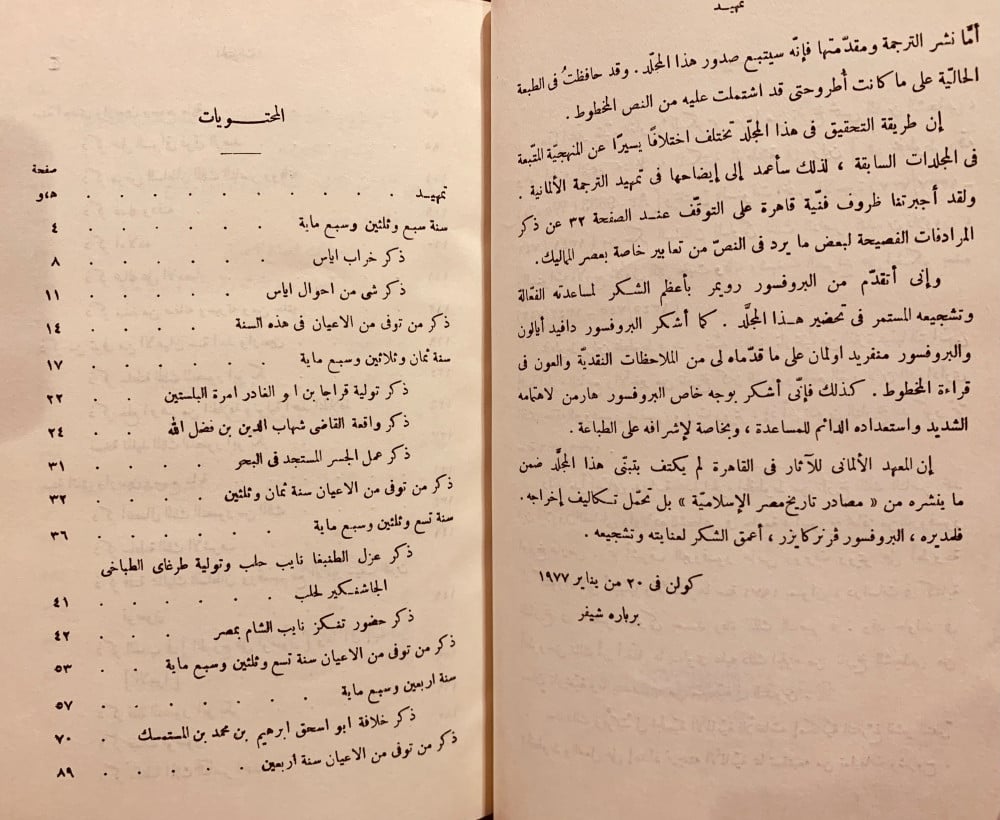 تمهيد
أمّا نشر الترجمة ومقدّمتها فإنّه سيتبع صدور هذا المجلّد . وقد حافظتُ فى الطبعة
الحاليّة على ما كانت أُطروحتى قد اشتملت عليه من النص المخطوط .
إن طريقة التحقيق فى هذا المجلّد تختلف اختلافًا يسيرًا عن المنهجيّة المتّبعة
فى المجلدات السابقة ، لذلك سأعمد إلى إيضاحها فى تمهيد الترجمة الألمانية .
ولقد أجبرتنا ظروف فنّية قاهرة على التوقّف عنـد الصفحة ٣٢ عن ذكر
المرادفات الفصيحة لبعض ما يرد فى النصّ من تعابير خاصة بعصر المماليك.
وإنى أتقدّم من البروفسور رويمر بأعظم الشكر لمساعدته الفعّالة
وتشجيعه المستمر فى تحضير هـذا المجلّد . كما أشكر البروفسور دافيد أيالون
والبروفسور منفريد اولمان على ما قدّماه لى من الملاحظات النقديّة والعون فى
قراءة المخطوط . كذلك فإنّى أشكر بوجه خاص البروفسور هارمن لاهتمامه
الشديد واستعداده الدائم للمساعدة ، وبخاصة لإشرافه على الطباعة .
إن المعهد الألمانى للآثار فى القاهرة لم يكتف بتبنّى هذا المجلّد ضمن
ما ينشره من « مصادر تاريخ مصر الإسلاميّة » بل تحمّل تـكاليف إخراجه .
فلمديره ، البروفسور ڤرنركايزر ، أعمق الشكر لعنايته وتشجيعه .
كولن فى ٢٠ من يناير ١٩٧٧
برباره شيفر
المحتـويات
صفحة
تمهيـد . . . . . . . . . ه،و
سنة سبع وثلثين وسبع ماية . . . . . . ٤
ذكر خراب اياس . . . . . . ٨
ذكر شى من احوال اياس . . . . . ١١
ذكر من توفى من الاعيان فى هذه السنة . . . . ١٤
سنة ثمان وثلاثين وسبع ماية . . . . . ١٧
ذكر تولية قراجا بن ا و الغادر امرة البلستين . . ٢٢
ذكر واقعة القاضى شهاب الدين بن فضل الله . . ٢٤
ذكر عمل الجسر المستجد فى البحر . . . . ٣١
ذكر من توفى من الاعيان سنة ثمان وثلثين . . . ٣٢
سنة تسع وثلثين وسبع ماية . . . . . ٣٦
ذكر عزل الطنبغا نايب حلب وتولية طرغاى الطباخى
الجاشنـكير لحلب . . . . . . ٤١
ذكر حضور تنـكز نايب الشام بمصر . . . . ٤٢
ذكر من توفى من الاعيان سنة تسع وثلثين وسبع ماية . . ٥٣
سنة اربعين وسبع ماية . . . . . . ٥٧
ذكر خلافة ابو اسحق ابرهيم بن محمد بن المستمسك . ٧٠
ذكر من توفى من الاعيان سنة اربعين . . . . . ٨٩